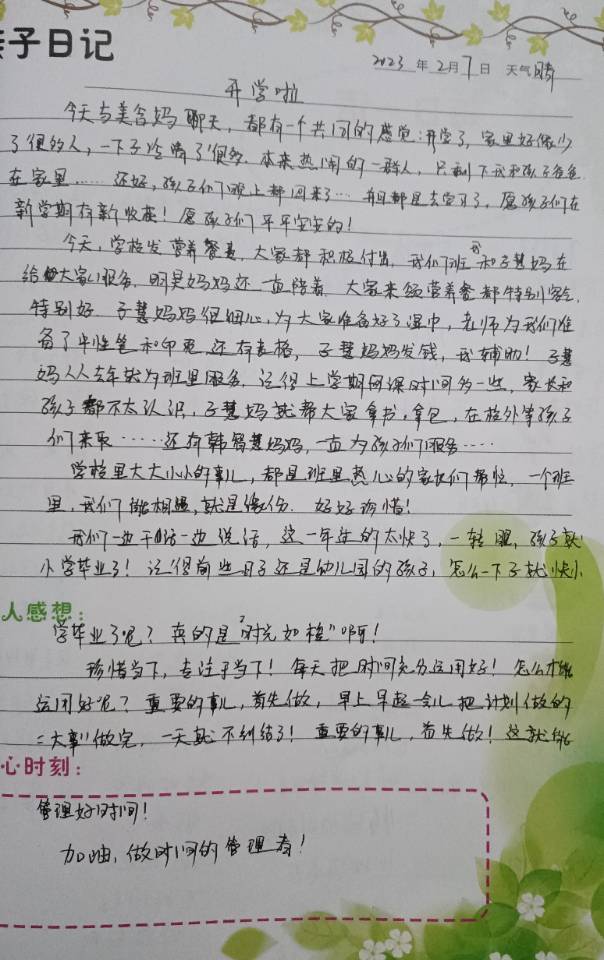 亲子日记
2023年2月7日 天气晴
开学啦
今天与美含妈聊天，都有一个共同的感觉：开学了，家里好像少
了很多人，一下子冷清了很多。本来热闹的一群人，只剩下我和孩子爸爸
在家里……还好，孩子们晚上都回来了…并且都是去学习了，愿孩子们在
新学期有新收获！愿孩子们平平安安的！
今天，学校发营养餐费，大家都积极付出，我们班我和子慧妈在
给大家服务，明昊妈妈还一直陪着。大家来领营养餐都特别客气，
特别好。子慧妈妈很细心，为大家准备好了湿巾，老师为我们准
备了中性笔和印泥，还有表格，子慧妈妈发钱，我辅助！子慧
妈人从去年就为班里服务，记得上学期网课时间多一些，家长和
孩子都不太认识，子慧妈就帮大家拿书，拿包，在校外等孩子
们来取……还有韩智慧妈妈，一直为孩子们服务……
学校里大大小小的事儿，都是班里热心的家长们帮忙，一个班
里，我们能相遇，就是缘份。好好珍惜！
我们一边干活一边说话，这一年过的太快了，一转眼，孩子就
小学毕业了！记得前些日子还是幼儿园的孩子，怎么一下子就快小
人感想：
学毕业了呢？真的是“时光如梭”啊！
珍惜当下，专注于当下！每天把时间充分运用好！怎么才能
运用好呢？重要的事儿，首先做，早上早起一会儿把计划做的
“大事”做完，一天就不纠结了！重要的事儿，首先做！这就能
心时刻：
管理好时间！
加油，做时间的管理者！